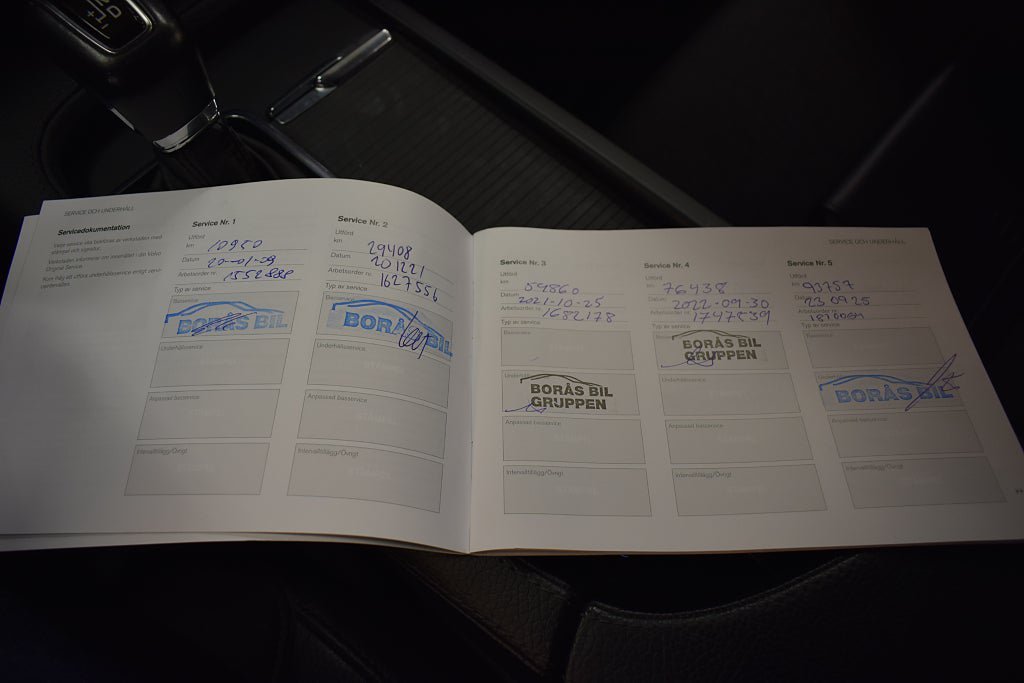 SERVICE OCH UNDERHÅLL
Servicedokumentation
Varje service ska bekräftas av verkstaden med
stämpel och signatur.
Verkstaden informerar om innehållet i din Volvo
Original Service.
Kom ihåg att utföra underhållsservice enligt servi-
Service Nr. 1
Utförd
km 10950
Datum
Arbetsorder nr. 1552888
Typ av service
Basservice
BORÅS BIL
Underhållsservice
Anpassad basservice
Intervalltillägg/Övrigt
Service Nr. 2
Utförd
km 29408
Datum 201221
Arbetsorder nr. 1627556
Typ av service
Basservice
BORÅS BIL
Underhållsservice
Anpassad basservice
Intervalltillägg/Övrigt
SERVICE OCH UNDERHÅLL
Service Nr. 3
Utförd
km 59860
Datum 2021-10-25
Arbetsorder nr. 1682178
Typ av service
Basservice
BORÅS BIL
GRUPPEN
Anpassad basservice
Intervalltillägg/Övrigt
Service Nr. 4
Utförd
km 76438
Datum 2022-09-30
Arbetsorder nr. 1747539
Typ av service
BORÅS BIL
GRUPPEN
Underhållsservice
Anpassad basservice
Intervalltillägg/Övrigt
Service Nr. 5
Utförd
km 93757
Datum 23 09 25
Arbetsorder nr.
Typ av service
Basservice
BORÅS BIL
Anpassad basservice
Intervalltillägg/Övrigt